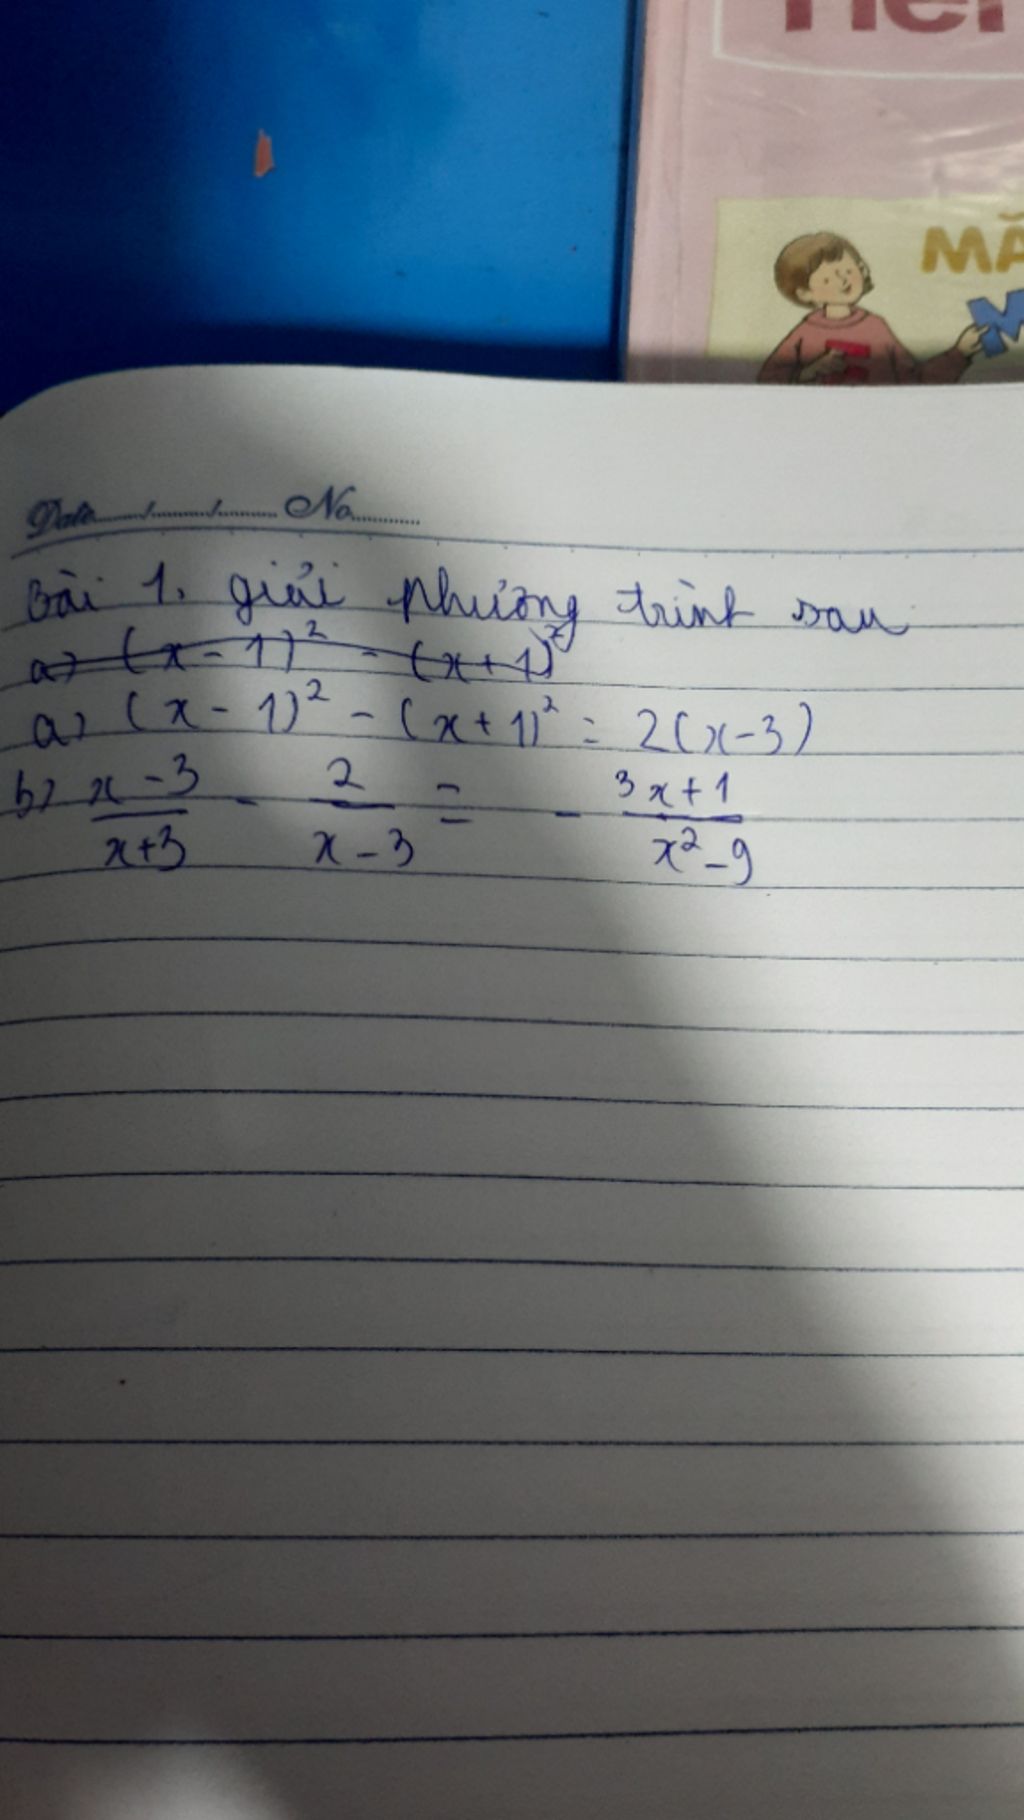 MÃ
Date....../......./........ No.........
Bài 1. giải phương trình sau
a) (x - 1)² - (x + 1)²
a) (x - 1)² - (x + 1)² = 2(x - 3)
b) \frac{x - 3}{x + 3} - \frac{2}{x - 3} = - \frac{3x + 1}{x² - 9}